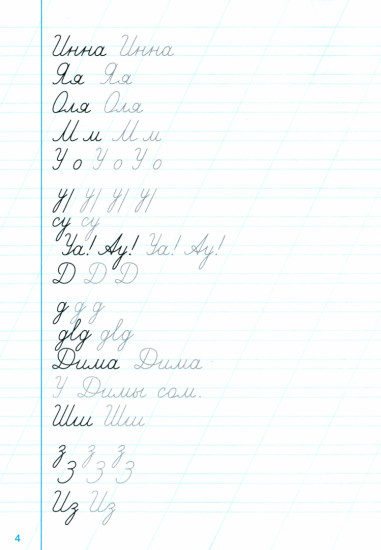 Инна Инна
Яя Яя
Оля Оля
М м М м
У о У о У о
су су
Уа! Ау! Уа! Ау!
Д Д Д
д д д
Дима Дима
У Димы сом.
Шш Шш
з з з
З З З
Из Из
4